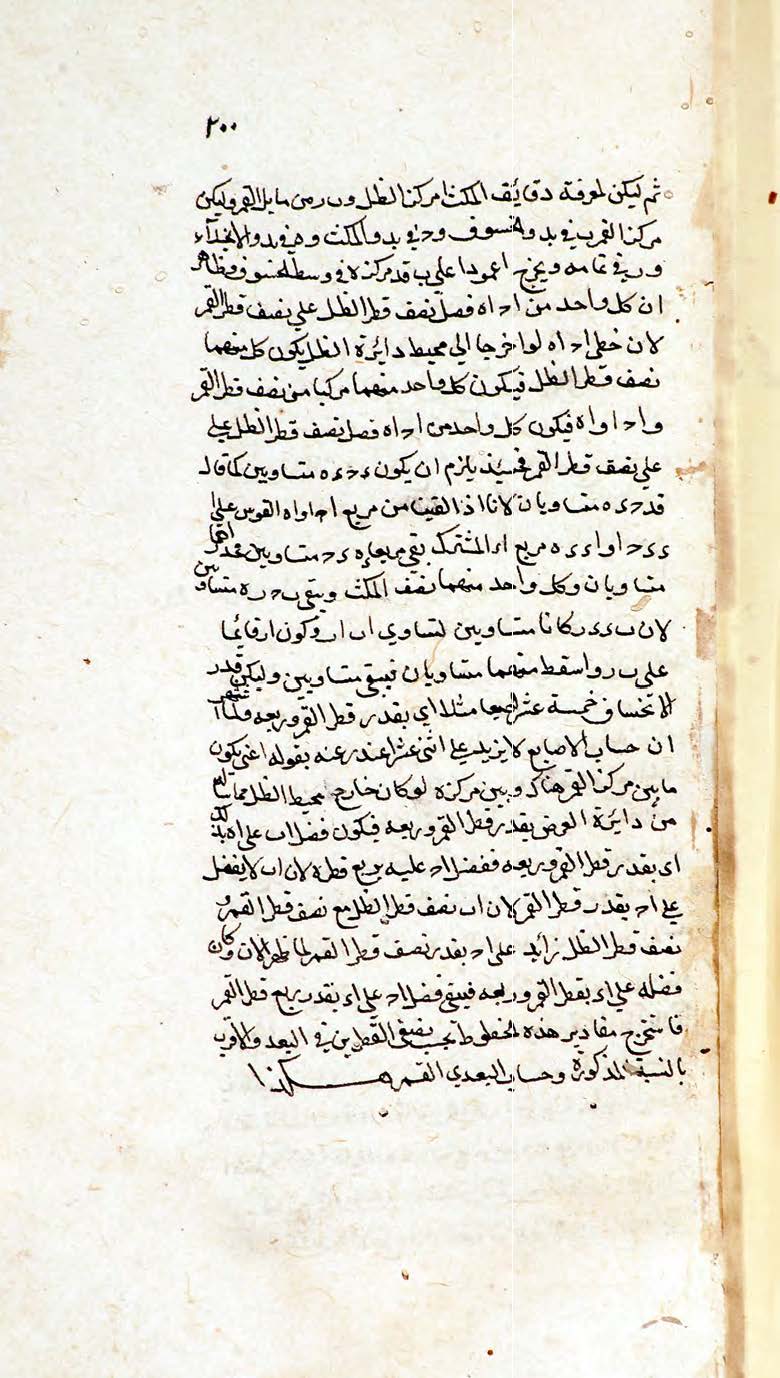 ٢٠٠
ثم ليكن لمعرفة دقائق المكث ا مركز الظل و ب ر من مايل القمر وليكن
مركز القمر في بدو الخسوف و ح في بدو المكث و ه في بدو الانجلاء
و ر في تمامه ويخرج ا عمودا علي ب قد مركزه في وسط الخسوف وظاهر
ان كل واحد من ا ح ا ه فصل نصف قطر الظل علي نصف قطر القمر
لان خطي ا ح ا ه لو اخرجا الي محيط دائرة الظل يكون كل منهما
نصف قطر الظل فيكون كل واحد منهما مركبا من نصف قطر القمر
و ا ح او ا ه فيكون كل واحد من ا ح ا ه فصل نصف قطر الظل علي
علي نصف قطر القمر فحينئذ يلزم ان يكون متساويين كما قال
متساويان لانا اذا القينا من مربع ا ح او ا ه القوس علي
مربع اء المشترك بقي مربعا متساويين
متساويان وكل واحد منهما نصف المكث ويبقي ب ح ر ه متساويين
لان كانا متساويين لتساوي اب ار وكون ا قائما
علي ب ر واسقط منهما متساويان فيبقي متساويين وليكن قدر
الانخساف خمسة عشر اصبعا مثلا اي بقدر قطر القمر وربعه ولما
ان حساب الاصابع لا يزيد علي اثني عشر اعتذر عنه بقوله اعني يكون
ما بين مركز القمر هناك وبين مركزه لو كان خارج محيط الظل مماسا له
من دائرة العرض بقدر قطر القمر وربعه فيكون فضل اب علي اه بذلك
اي بقدر قطر القمر وربعه ففضل ا ح عليه بربع قطره لان اب لا يفضل
علي ا ح بقدر قطر القمر لان اب نصف قطر الظل مع نصف قطر القمر و
نصف قطر الظل زائد علي ا ح بقدر نصف قطر القمر لما ظهر الان وكان
فضله علي اء بقطر القمر وربعه فيبقي فضل ا ح علي اء بقدر ربع قطر القمر
فاستخرج مقادير هذه الخطوط بحسب نصفي القطرين في البعد والاقرب
بالنسبة المذكورة وحساب البعدي القمر هكذا